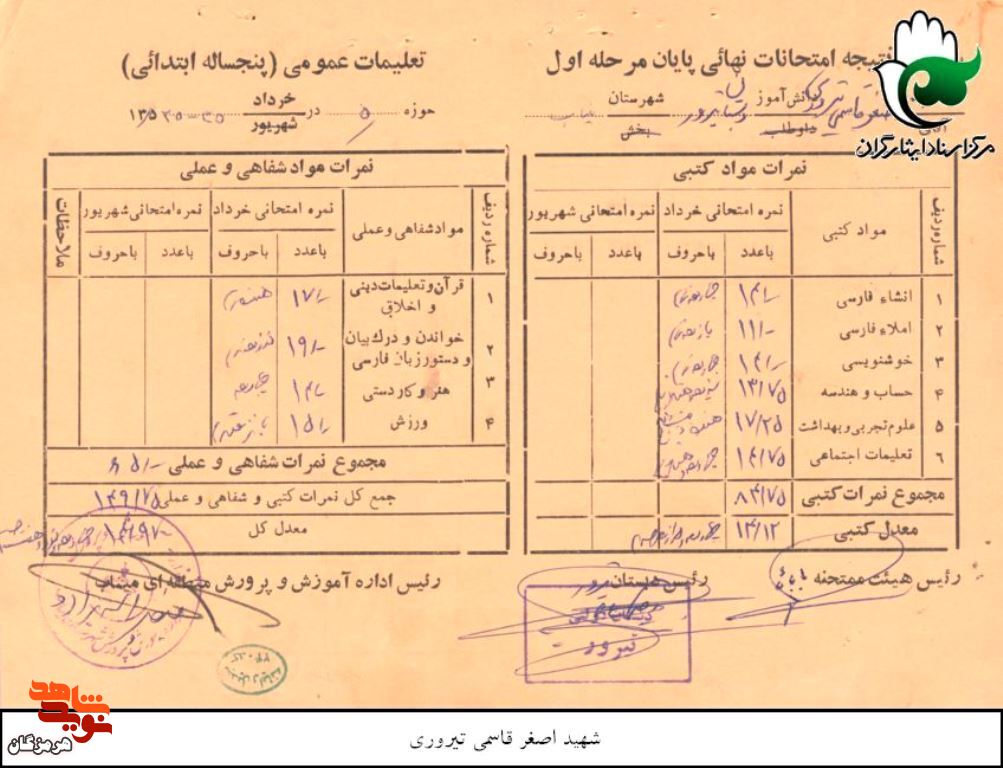 نتیجه امتحانات نهائی پایان مرحله اول
تعلیمات عمومی (پنجساله ابتدائی)
دانش آموز اصغر قاسمی تیروری دبستان تیرور شهرستان میناب
داوطلب بخش
حوزه ۵ در خرداد ۱۳۵
شهریور
مرکز اسناد ایثارگران
نمرات مواد کتبی
شماره ردیف مواد کتبی نمره امتحانی خرداد نمره امتحانی شهریور
باعدد باحروف باعدد باحروف
۱ انشاء فارسی ۱۴/- چهارده
۲ املاء فارسی ۱۱/- یازده
۳ خوشنویسی ۱۴/- چهارده
۴ حساب و هندسه ۱۳/۷۵
۵ علوم تجربی و بهداشت ۱۷/۲۵
۶ تعلیمات اجتماعی ۱۴/۷۵
مجموع نمرات کتبی ۸۴/۷۵
معدل کتبی ۱۴/۱۲
نمرات مواد شفاهی و عملی
شماره ردیف مواد شفاهی و عملی نمره امتحانی خرداد نمره امتحانی شهریور ملاحظات
باعدد باحروف باعدد باحروف
۱ قرآن و تعلیمات دینی و اخلاق ۱۷/- هفده
۲ خواندن و درک بیان و دستور زبان فارسی ۱۹/-
۳ هنر و کاردستی ۱۴/- چهارده
۴ ورزش ۱۵/-
مجموع نمرات شفاهی و عملی ۶۵/-
جمع کل نمرات کتبی و شفاهی و عملی ۱۴۹/۷۵
معدل کل ۱۴/۹۷
رئیس هیئت ممتحنه
رئیس دبستان تیرور
رئیس اداره آموزش و پرورش منطقه ای میناب
تیرور
نوید شاهد
هرمزگان
شهید اصغر قاسمی تیروری